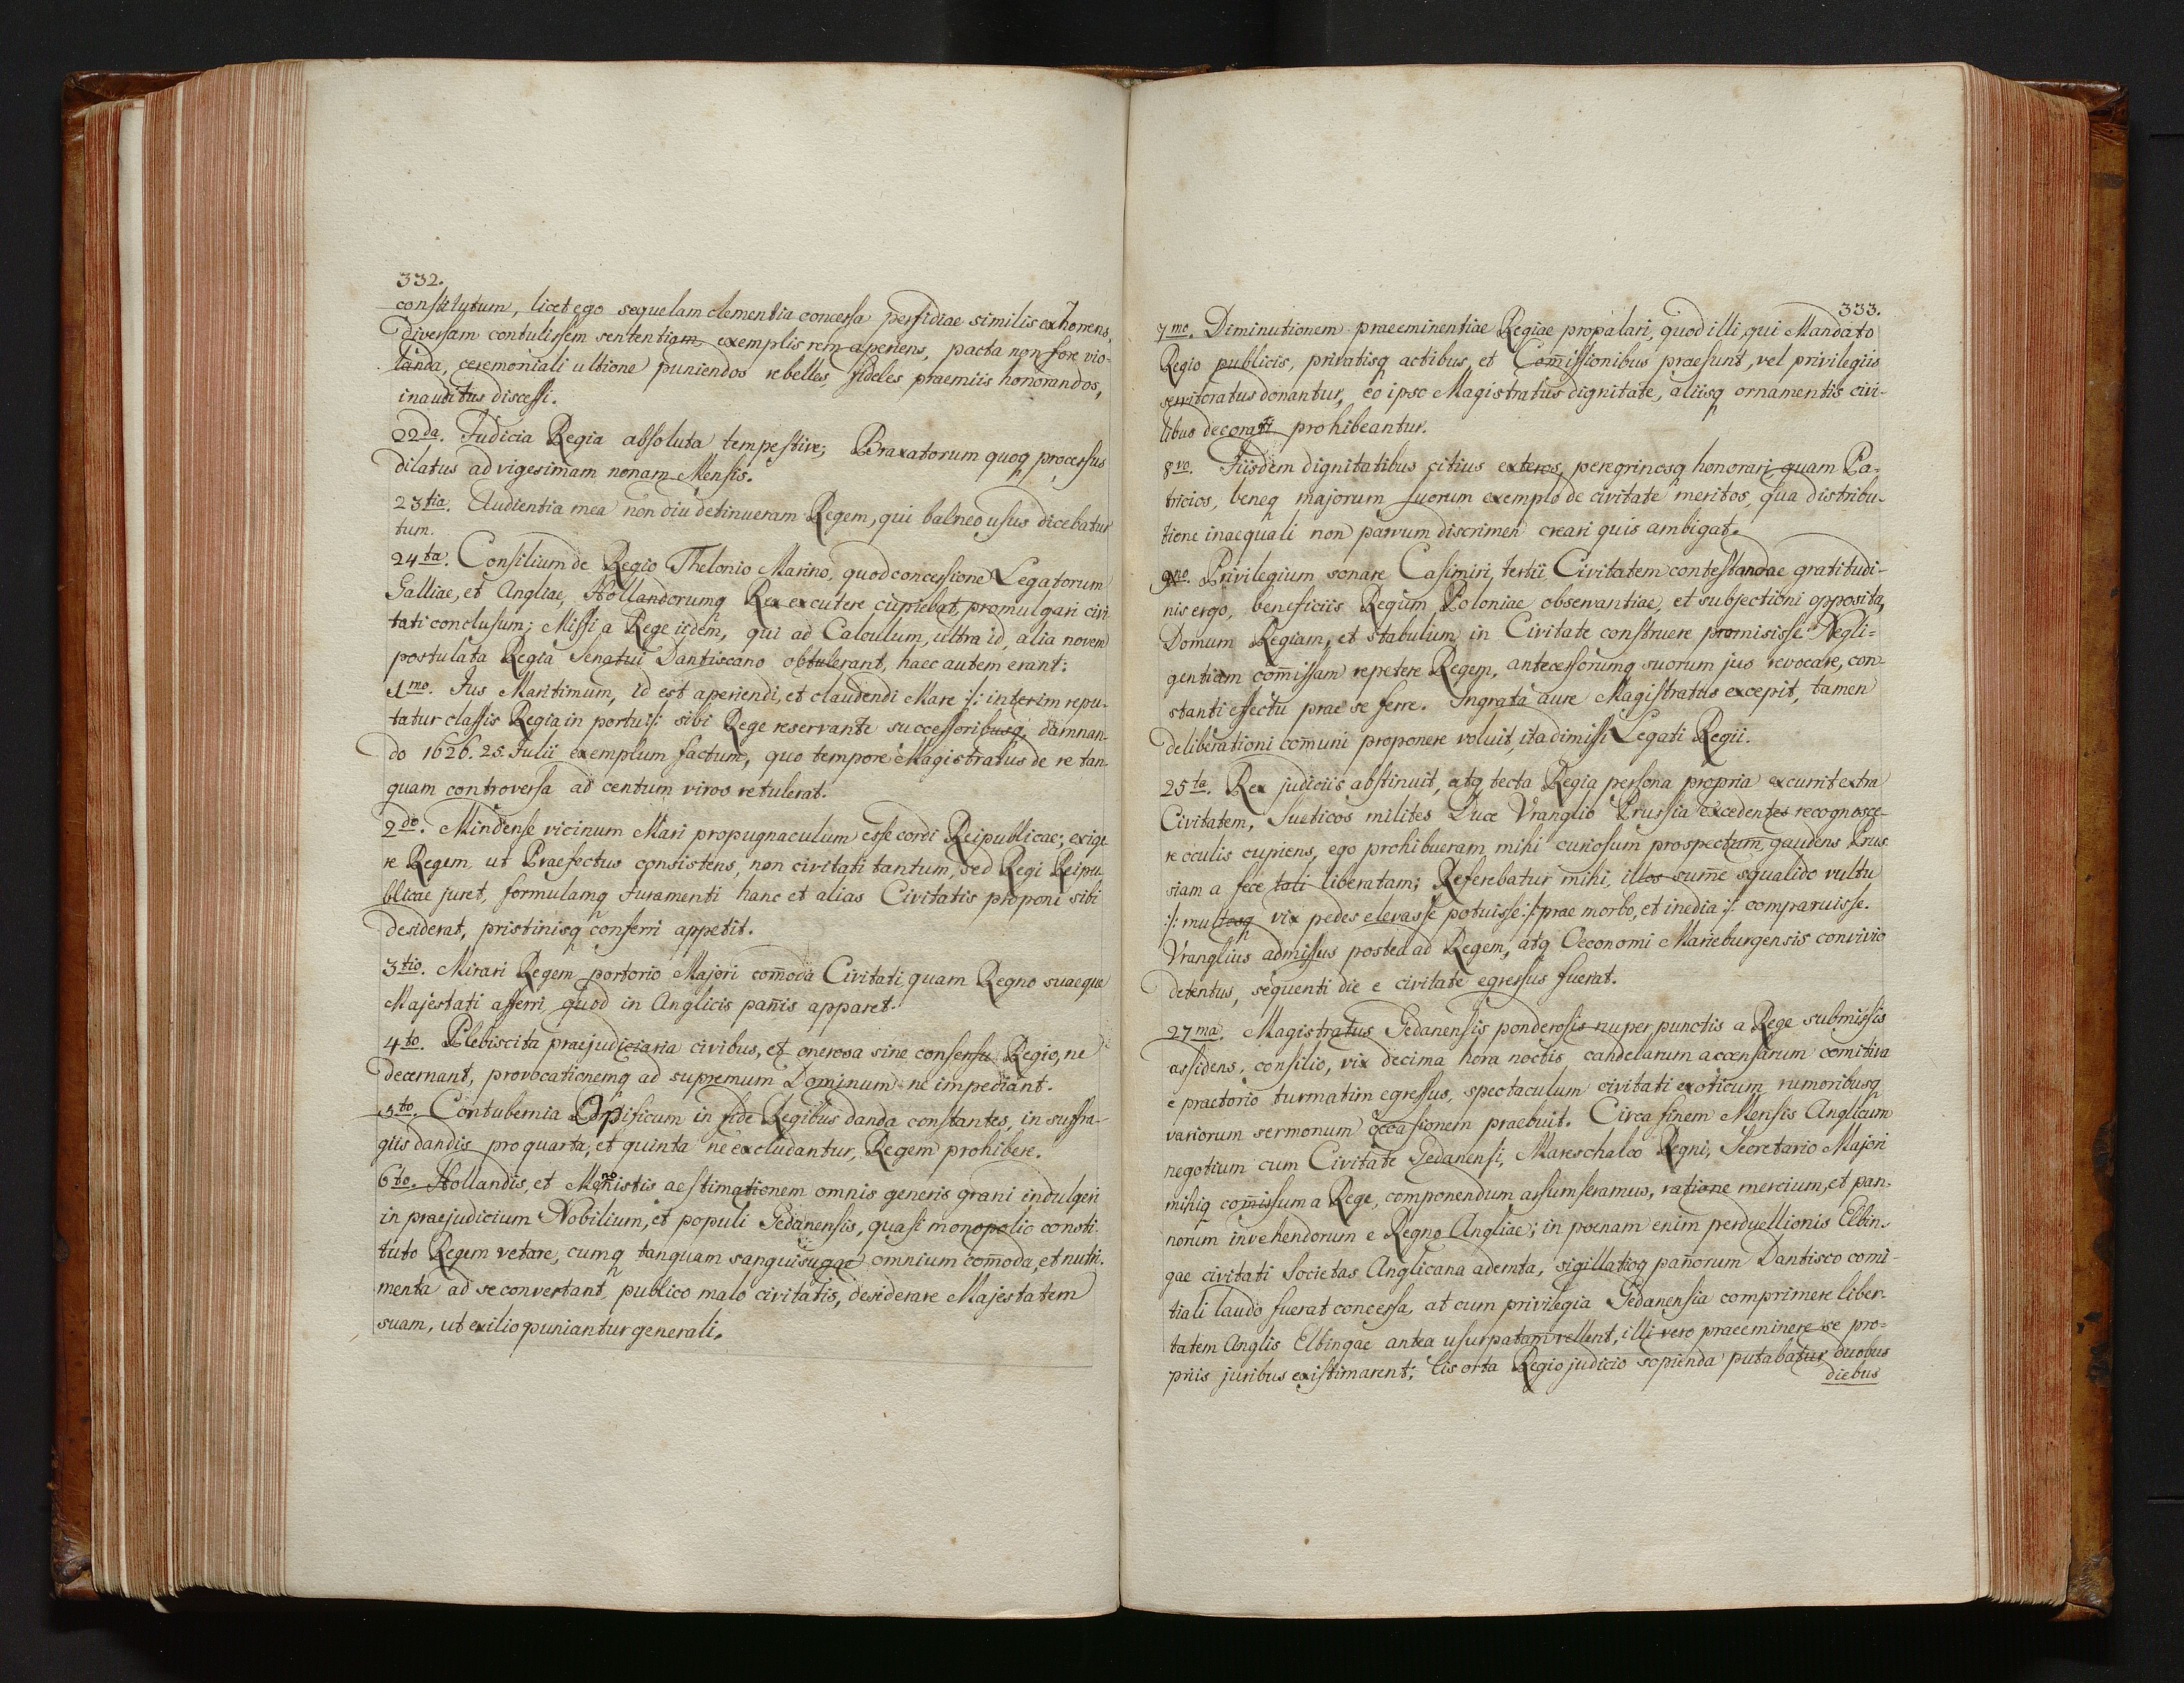 332.
constitutum, licet ego sequelam clementia concessa perfidiae similis exhorrens,
diversam contulissem sententiam, exemplis rem aperiens, pacta non fore vio-
landa, ceremoniali ultione puniendos rebelles fideles praemiis honorandos,
inauditus discessi.
22da. Judicia Regia absoluta tempestive; Braxatorum quoq processus
dilatus ad vigesimam nonam Mensis.
23tia. Audientia mea non diu detinueram Regem, qui balneo usus dicebatur
tum.
24ta. Consilium de Regio Thelonio Marino, quod concessione Legatorum
Galliae, et Angliae, Hollandorumq Rex excutere cupiebat, promulgari civi-
tati conclusum; Missi a Rege iidem, qui ad Calculum, ultra id, alia novem
postulata Regia Senatui Dantiscano obtulerant, haec autem erant:
1mo. Jus Maritimum, id est aperiendi, et claudendi Mare :/: interim repu-
tatur classis Regia in portu :/: sibi Rege reservante successoribusq, damnan-
do 1626. 25. Julii exemplum factum, quo tempore Magistratus de re tan-
quam controversa ad centum viros retulerat.
2do. Mindense vicinum Mari propugnaculum esse cordi Reipublicae; exige-
re Regem, ut Praefectus consistens, non civitati tantum, sed Regi Reipu-
blicae juret, formulamq Juramenti hanc et alias Civitatis proponi sibi
desiderat, pristinisq conferri appetit.
3tio. Mirari Regem portorio Majori com̄oda Civitati quam Regno suaeque
Majestati afferri quod in Anglicis pan̄is apparet.
4to. Plebiscita praejudiciaria civibus, et onerosa sine consensu Regio, ne
decernant, provocationemq ad supremum Dominum ne impediant.
5to. Contubernia Opificum in fide Regibus danda constantes, in suffra-
giis dandis pro quarta, et quinta ne excludantur, Regem prohibere.
6to. Hollandis, et Menonistis aestimationem omnis generis grani indulgeri
in praejudicium Nobilium, et populi Gedanensis, quasi monopolio consti-
tuto Regem vetare, cumq tanquam sanguisugae omnium com̄oda, et nutri-
menta ad se convertant, publico malo civitatis, desiderare Majestatem
suam, ut exilio puniantur generali.
333.
7mo. Diminutionem praeeminentiae Regiae propalari, quod illi, qui Mandato
Regio publicis, privatisq actibus, et Com̄issionibus praesunt, vel privilegiis
servitoratus donantur, eo ipso Magistratus dignitate, aliisq ornamentis civi-
libus decorari prohibeantur.
8vo. Iiisdem dignitatibus citius exteros, peregrinosq honorari, quam Pa-
tricios, beneq majorum suorum exemplo de civitate meritos, qua distribu-
tione inaequali non parvum discrimen creari quis ambigat.
9no. Privilegium sonare Casimiri tertii Civitatem contestandae gratitudi-
nis ergo, beneficiis Regum Poloniae observantiae, et subjectioni opposita,
Domum Regiam, et stabulum in Civitate construere promisisse. Negli-
gentiam com̄issam repetere Regem, antecessorumq suorum jus revocare, con-
stanti effectu prae se ferre. Ingrata aure Magistratus excepit, tamen
deliberationi com̄uni proponere voluit, ita dimissi Legati Regii.
25ta. Rex judiciis abstinuit, atq tecta Regia persona propria excurrit extra
Civitatem, Sueticos milites Duce Vranglio Prussia excedentes recognosce-
re oculis cupiens, ego prohibueram mihi curiosum prospectum, gaudens Prus-
siam a fece tali liberatam; Referebatur mihi, illos sum̄e squalido vultu
:/: multosq vix pedes elevasse potuisse :/: prae morbo, et inedia :/: comparuisse.
Vranglius admissus postea ad Regem, atq Oeconomi Marieburgensis convivio
detentus, sequenti die e civitate egressus fuerat.
27ma. Magistratus Gedanensis ponderosis nuper punctis a Rege submissis
assidens, consilio, vix decima hora noctis, candelarum accensarum comitiva
e praetorio turmatim egressus, spectaculum civitati exoticum, rumoribusq
variorum sermonum occasionem praebuit. Circa finem Mensis Anglicum
negotium cum Civitate Gedanensi, Mareschalco Regni, Secretario Majori
mihiq com̄issum a Rege, componendum assumseramus, ratione mercium, et pan-
norum invehendorum e Regno Angliae; in poenam enim perduellionis Elbin-
gae civitati Societas Anglicana ademta, sigillatioq pan̄orum Dantisco comi-
tiali laudo fuerat concessa, at cum privilegia Gedanensia comprimere liber-
tatem Anglis Elbingae antea usurpatam vellent, illi vero praeeminere se pro-
priis juribus existimarent; lis orta Regio judicio sopienda putabatur duobus
diebus